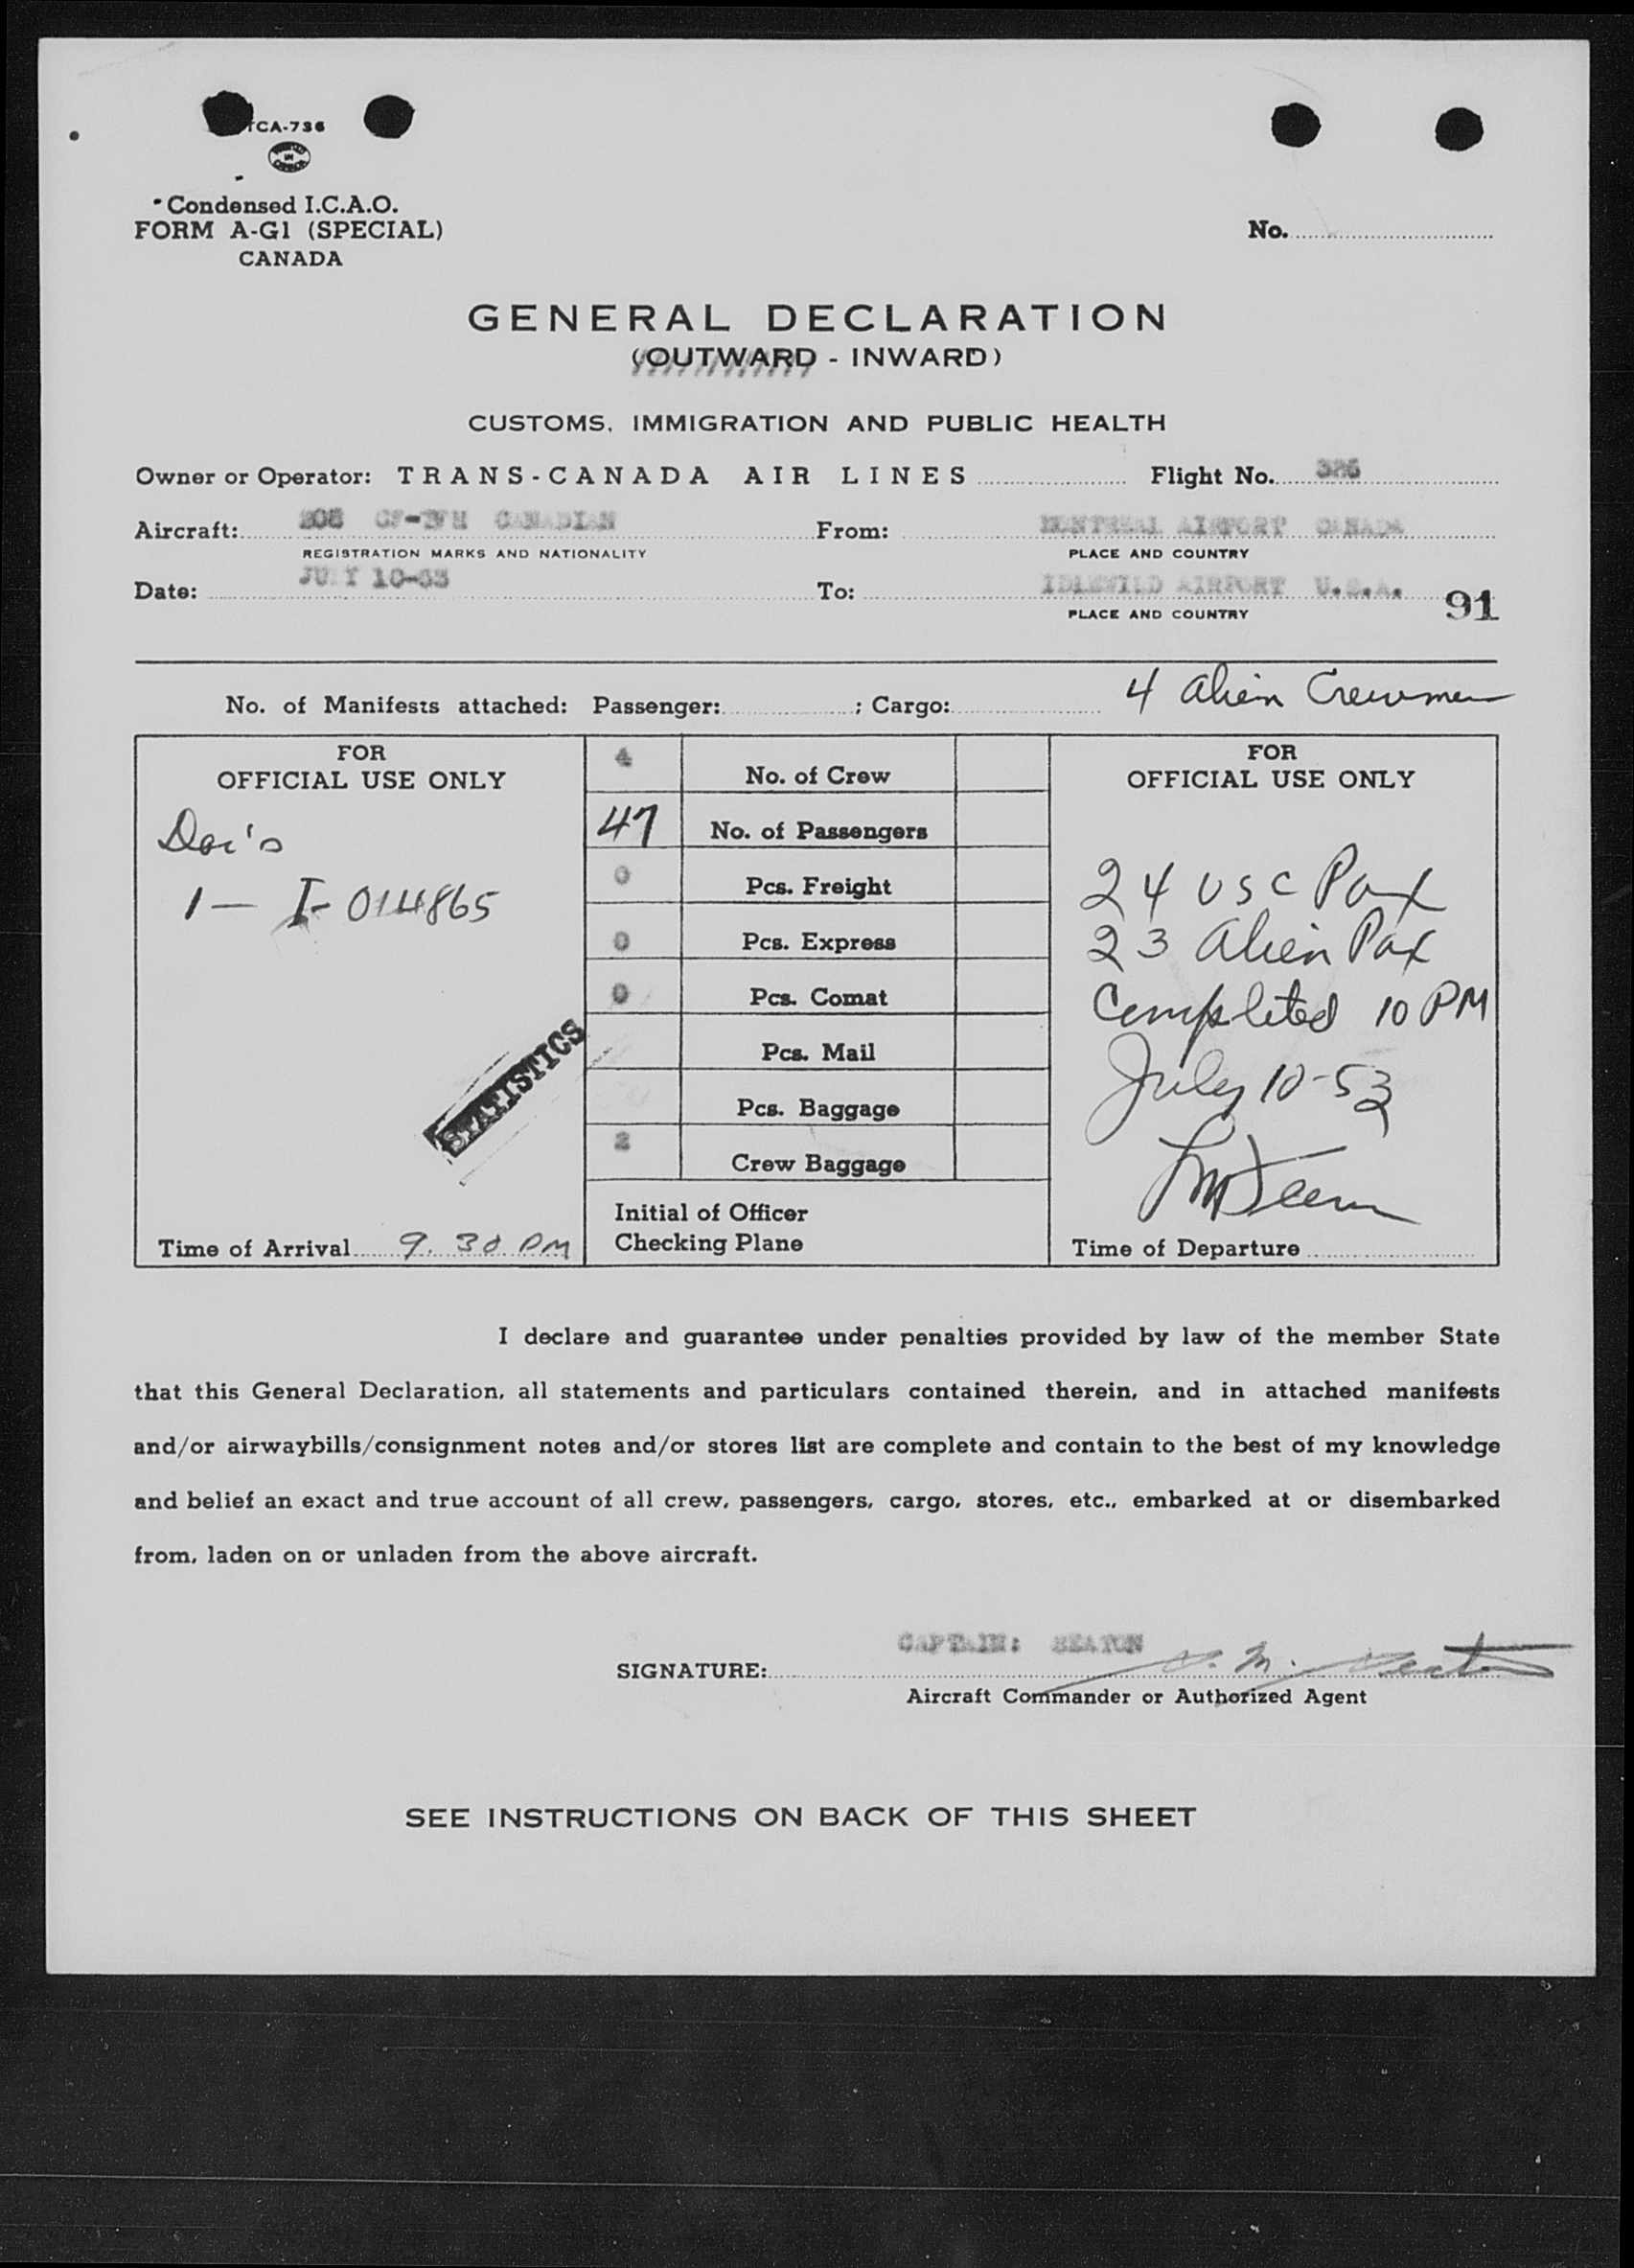 TCA-736
Condensed I.C.A.O.
FORM A-G1 (SPECIAL)
CANADA
No.
GENERAL DECLARATION
(OUTWARD - INWARD)
CUSTOMS, IMMIGRATION AND PUBLIC HEALTH
Owner or Operator: TRANS-CANADA AIR LINES Flight No. 326
Aircraft: 208 CF- CANADIAN From: MONTREAL AIRPORT CANADA
REGISTRATION MARKS AND NATIONALITY PLACE AND COUNTRY
Date: JULY 10-53 To: IDLEWILD AIRPORT U.S.A. 91
PLACE AND COUNTRY
No. of Manifests attached: Passenger: ; Cargo: 4 Alien Crewmen
FOR
OFFICIAL USE ONLY
1 - I-014865
STATISTICS
Time of Arrival 9.30 PM
4 No. of Crew
47 No. of Passengers
0 Pcs. Freight
0 Pcs. Express
0 Pcs. Comat
Pcs. Mail
Pcs. Baggage
2 Crew Baggage
Initial of Officer
Checking Plane
FOR
OFFICIAL USE ONLY
24 USC Pax
23 Alien Pax
Completed 10 PM
July 10-53
Time of Departure
I declare and guarantee under penalties provided by law of the member State
that this General Declaration, all statements and particulars contained therein, and in attached manifests
and/or airwaybills/consignment notes and/or stores list are complete and contain to the best of my knowledge
and belief an exact and true account of all crew, passengers, cargo, stores, etc., embarked at or disembarked
from, laden on or unladen from the above aircraft.
CAPTAIN: SEATON
SIGNATURE:
Aircraft Commander or Authorized Agent
SEE INSTRUCTIONS ON BACK OF THIS SHEET